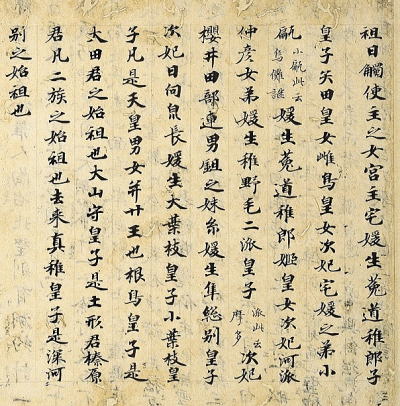 祖日觸使主之女宮主宅媛生菟道稚郎子
皇子矢田皇女雌鳥皇女次妃宅媛之弟小
甂小甂此云烏儺謎媛生菟道稚郎姬皇女次妃河派
仲彦女弟媛生稚野毛二派皇子派此云摩多次妃
櫻井田部連男鉏之妹糸媛生隼総別皇子
次妃日向泉長媛生大葉枝皇子小葉枝皇
子凡是天皇男女并廿王也根鳥皇子是
大田君之始祖也大山守皇子是土形君榛原
君凡二族之始祖也去来真稚皇子是深河
別之始祖也